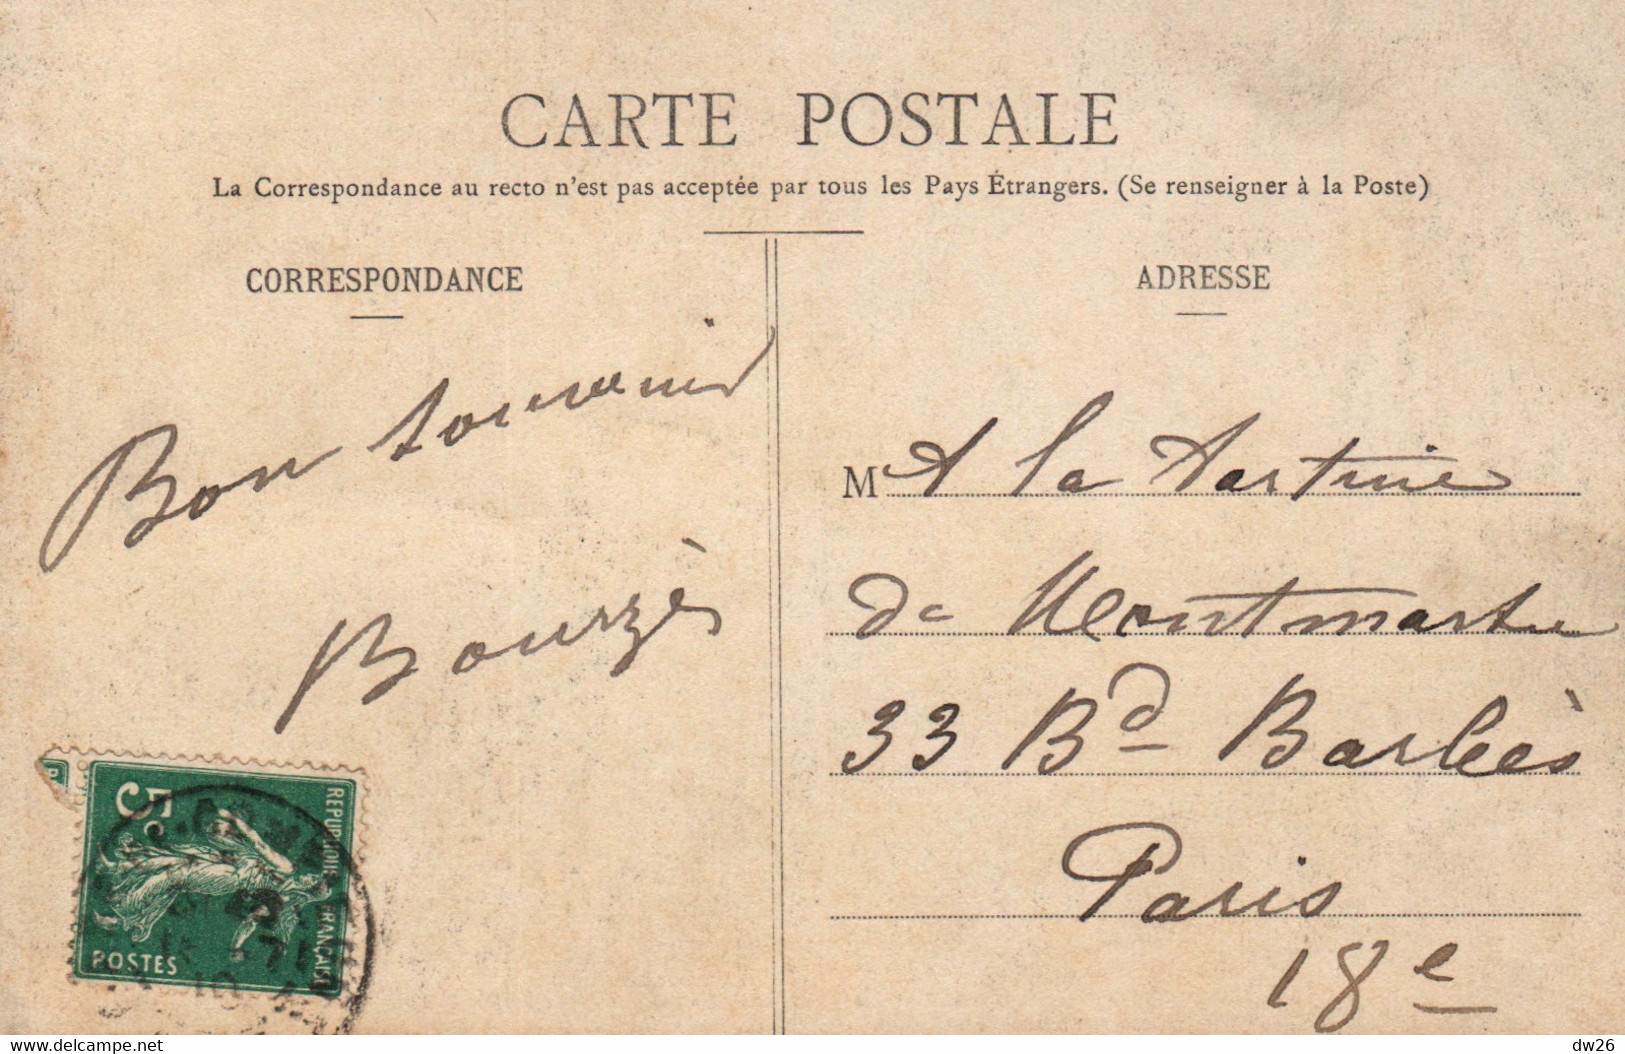 CARTE POSTALE
La Correspondance au recto n'est pas acceptée par tous les Pays Étrangers. (Se renseigner à la Poste)
CORRESPONDANCE
Bon souvenir
Bourzès
5c
REPUBLIQUE FRANÇAISE
POSTES
ADRESSE
M A la
de Montmartre
33 Bd Barbès
Paris
18e
delcampe.net
dw26